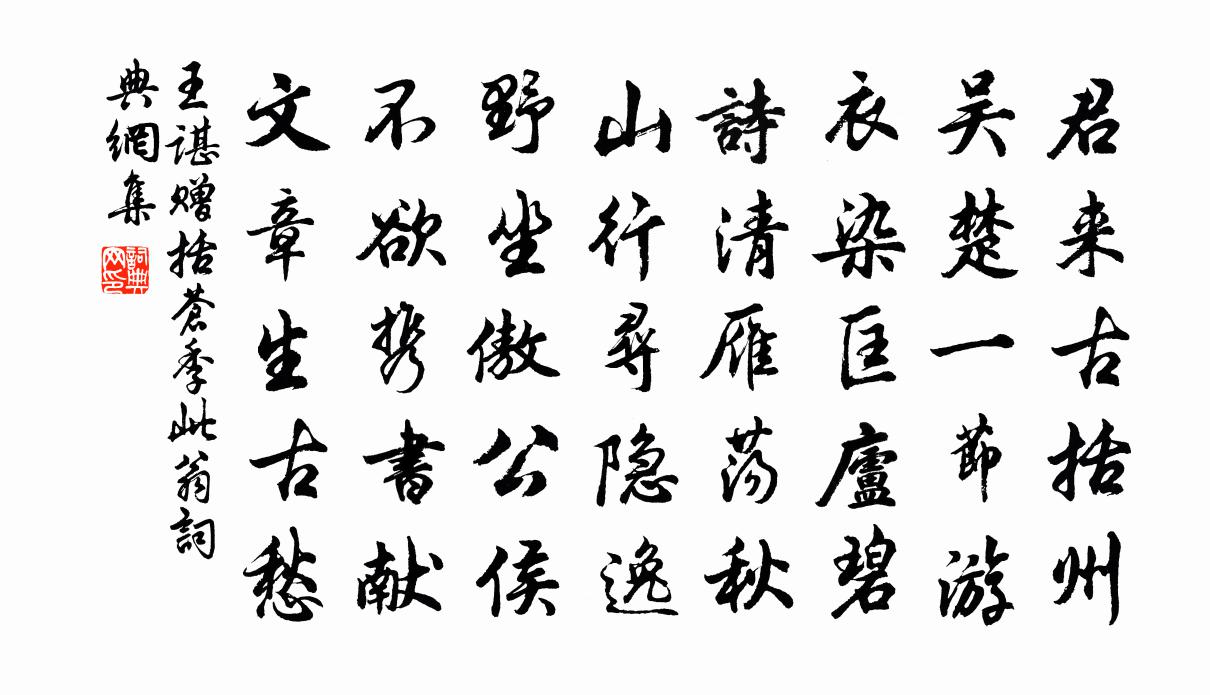 君来古括州
吴楚一節游
衣染匡廬碧
詩清雁荡秋
山行尋隐逸
野坐傲公侯
不欲携書献
文章生古愁
王谌赠括蒼季此翁詞
典網集
詞典
网印